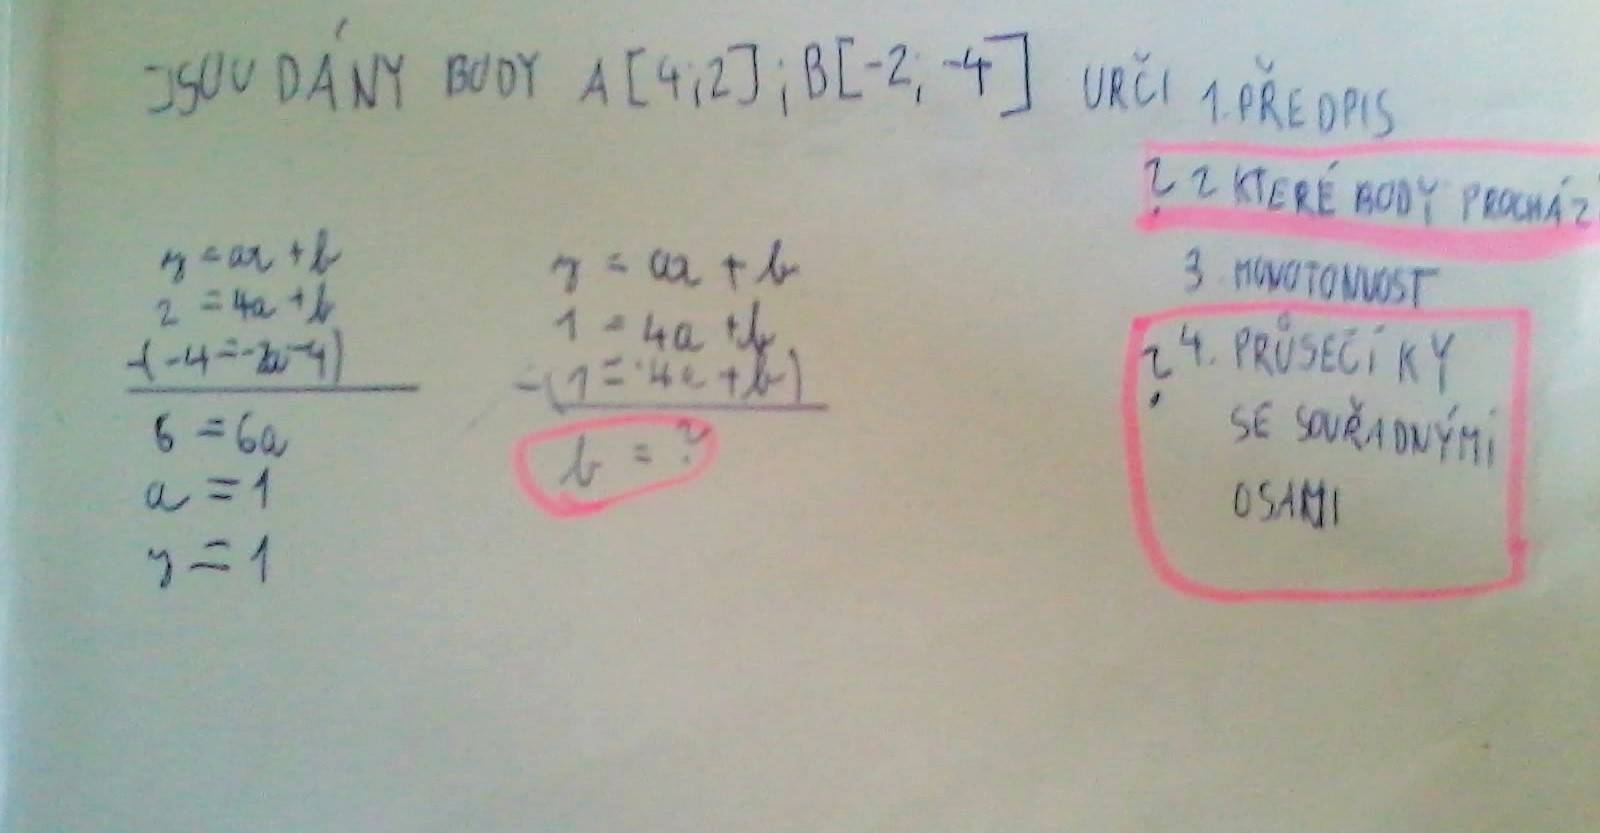 JSOU DÁNY BODY A[4;2]; B[-2; -4] URČI 1. PŘEDPIS
? 2 KTERÉ BODY PROCHÁZ
3 MONOTONNOST
? 4. PRŮSEČÍKY
SE SOUŘADNÝMI
OSAMI
y = ax + b
2 = 4a + b
6 = 6a
a = 1
y = 1
y = ax + b
1 = 4a + b
-(1 = 4a + b)
b = ?